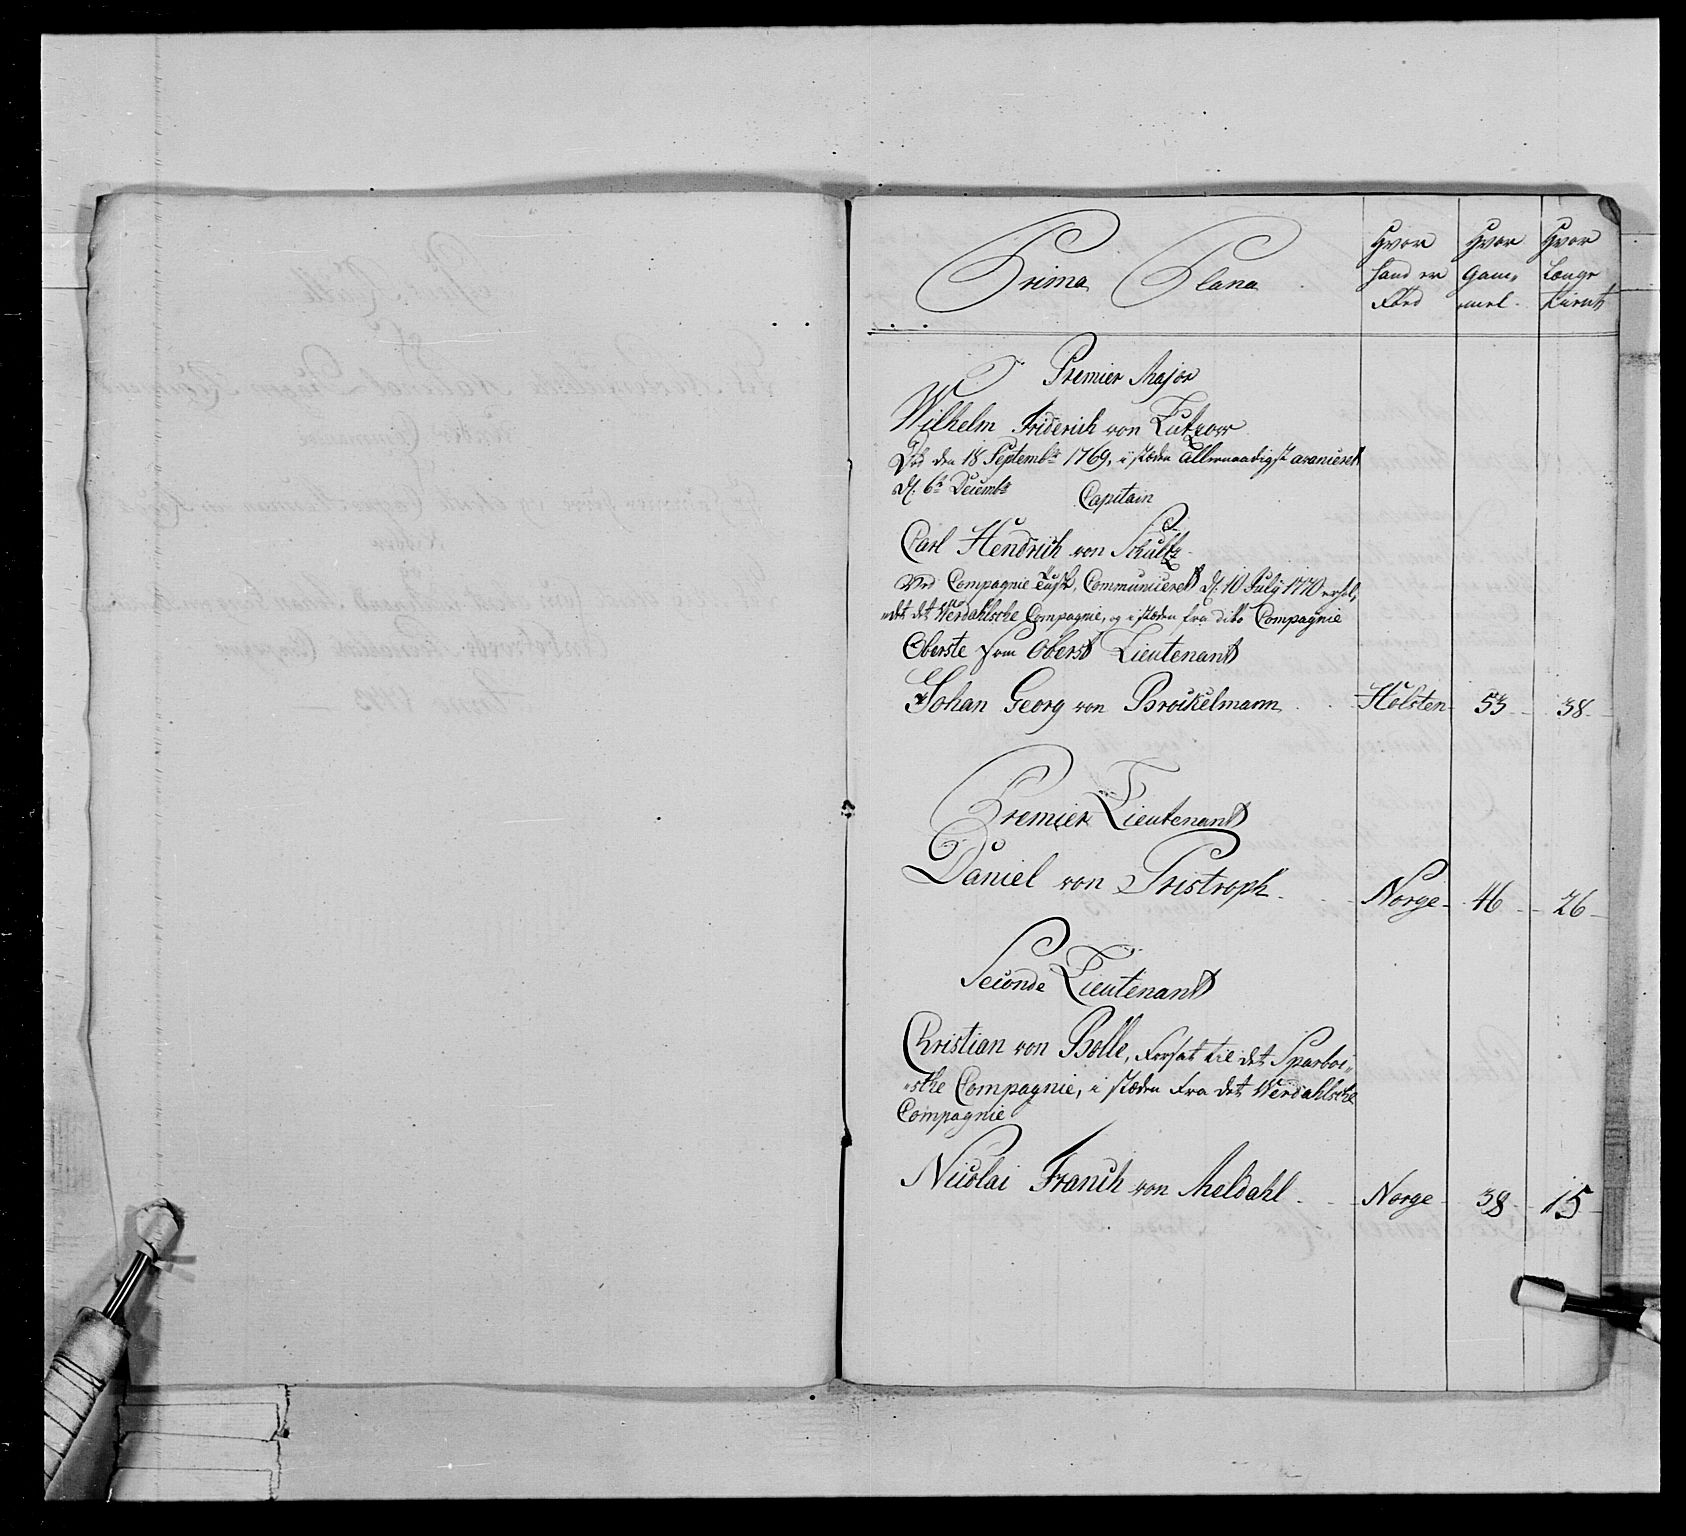 Prima Plana
Hvor hand er Fød
Hvor Gam-mel
Hvor Længe tient
Premier Major
Wilhelm Friderich von Lutzow
Død den 18 Septembr 1769, i stæden allernaadigst avanceret
d. 6t Decembr
Capitain
Carl Hendrich von Schultz
ved Compagnie Communiceret d. 10 July 1770 erhol-
det det Werdahlsche Compagnie, og i stæden fra dito Compagnie
Oberste som Oberst Lieutenant
Johan Georg von Brockelmann Holsten 53 38
Premier Lieutenant
Daniel von Pristroph Norge 46 26
Seconde Lieutenant
Christian von Bolle, forsat til det Sparboi-
sche Compagnie, i stæden fra det Werdahlsche
Compagnie
Nicolai Franch von Meldahl Norge 38 15